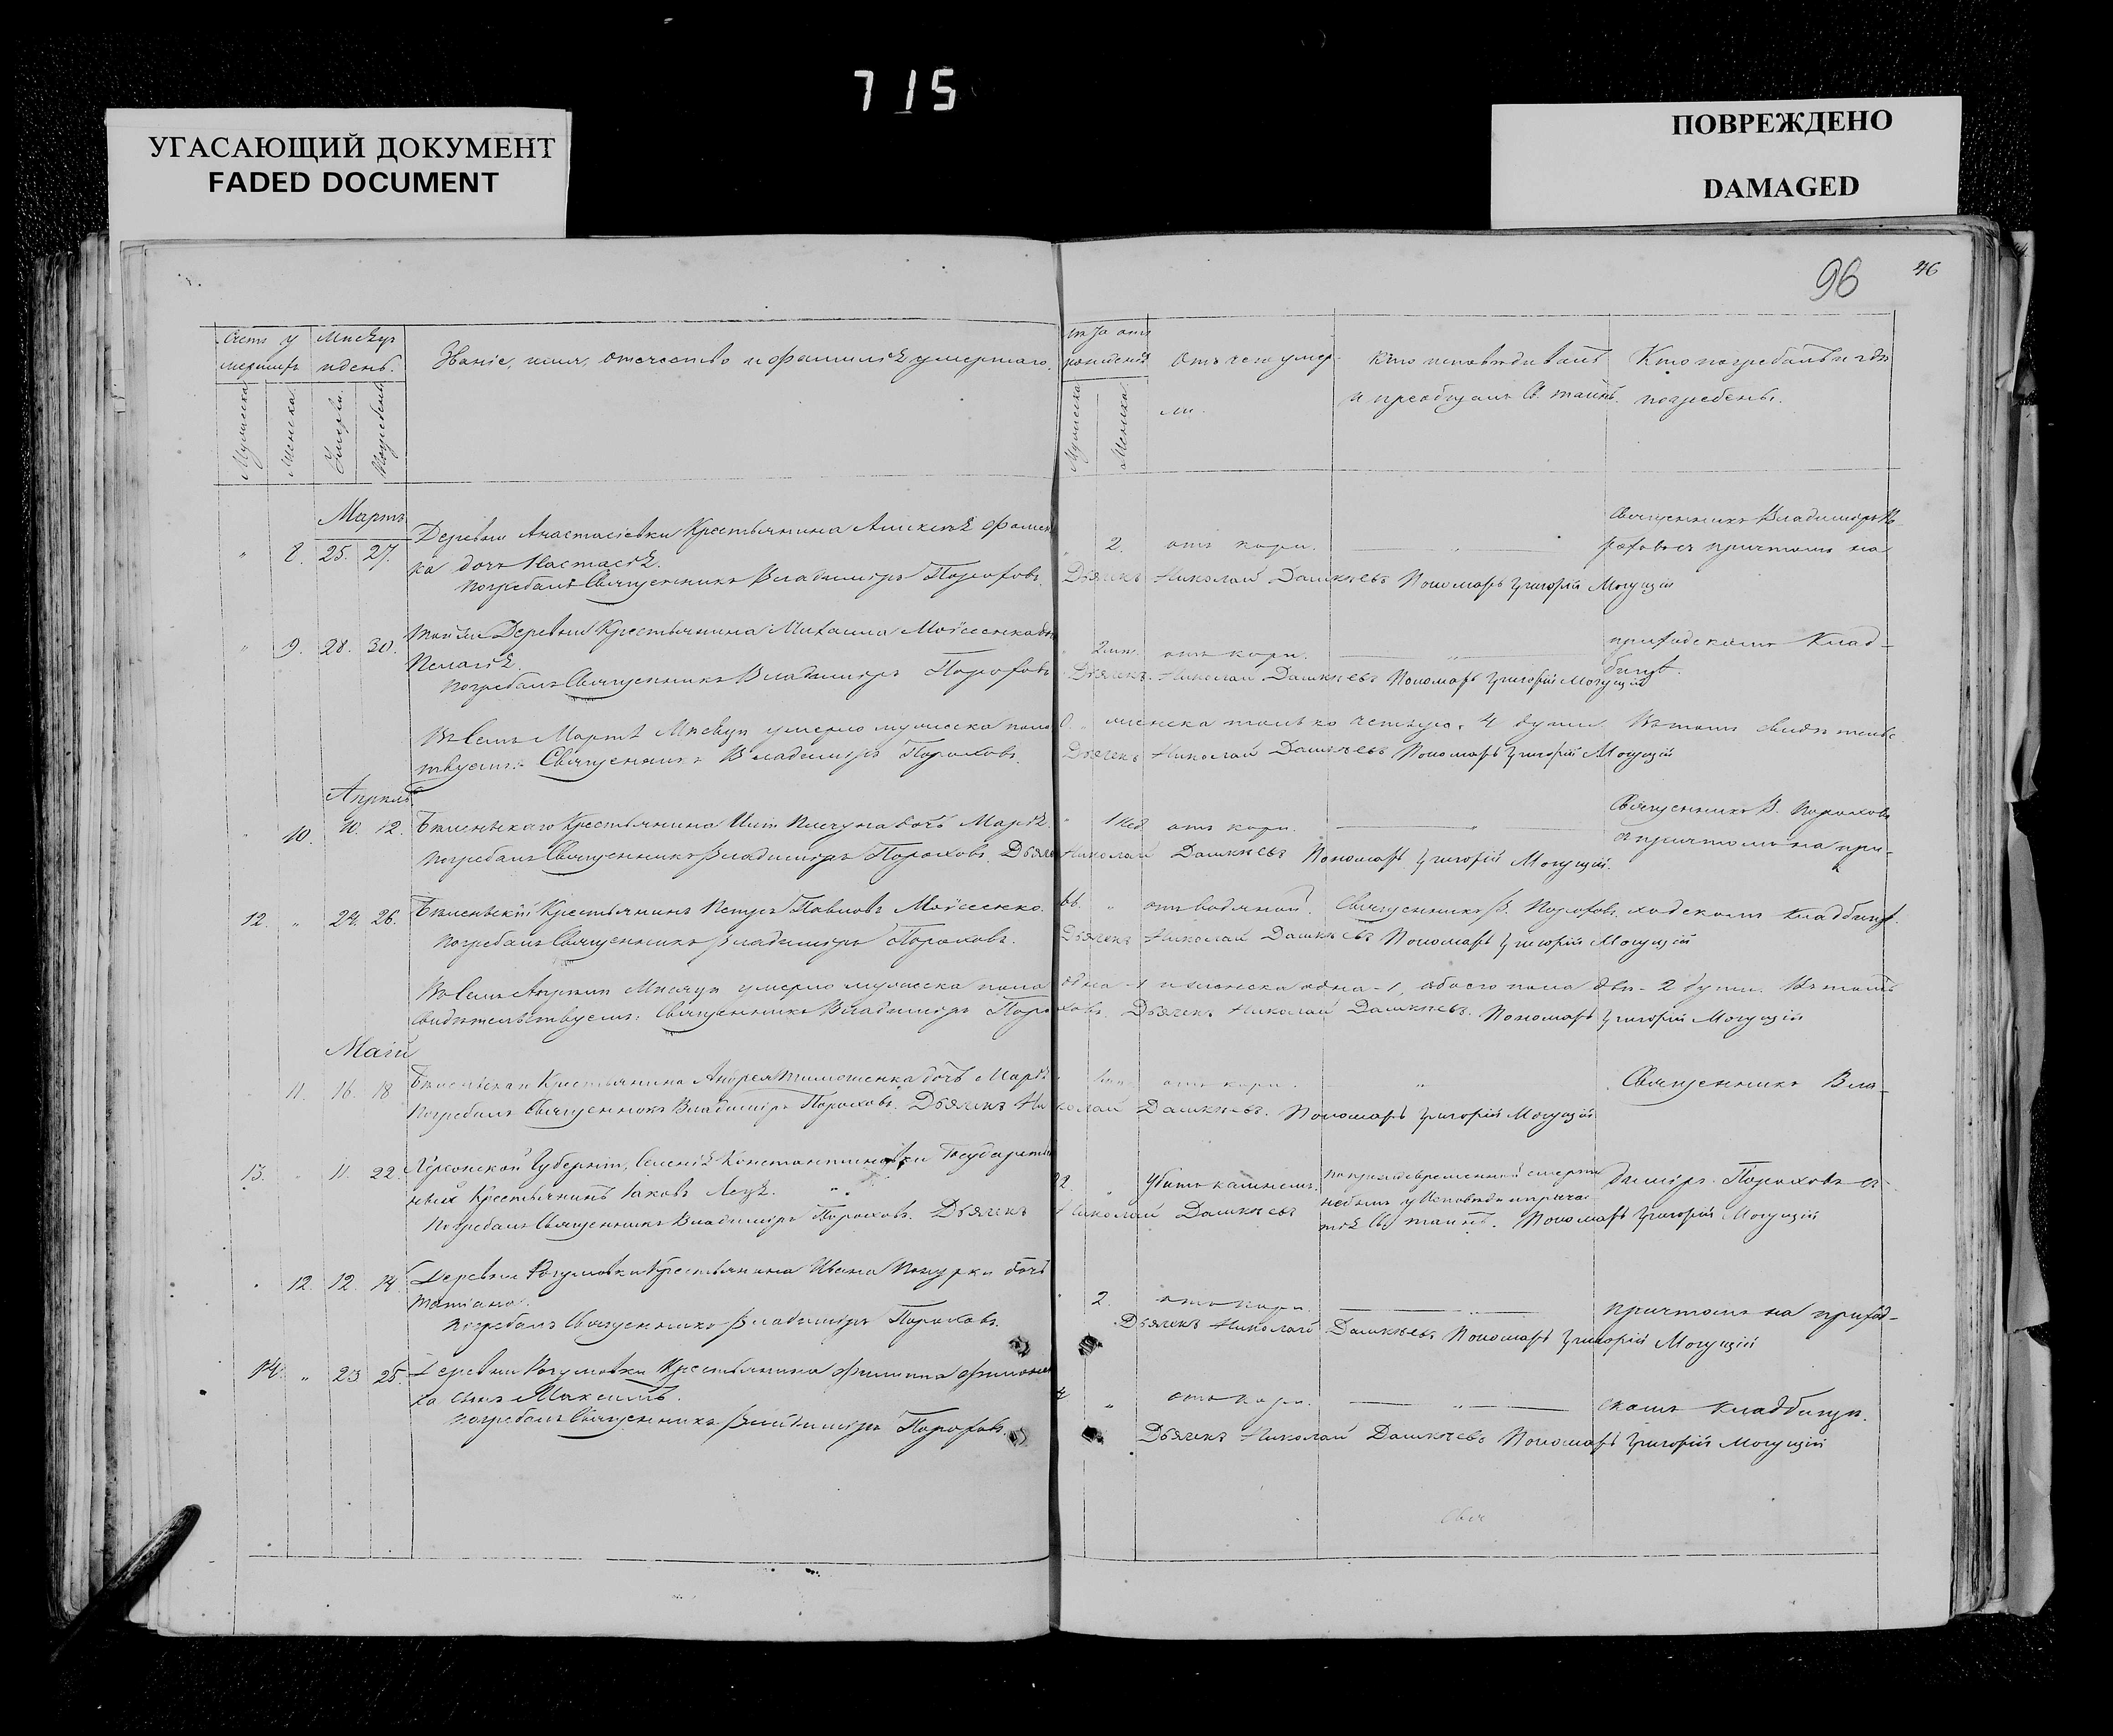 715
УГАСАЮЩИЙ ДОКУМЕНТ
FADED DOCUMENT
ПОВРЕЖДЕНО
DAMAGED
96
46
Счетъ умершихъ
Мѣсяцъ и день.
Званіе, имя, отечество и фамилія умершаго.
Лѣта отъ рожденія
Отъ чего умерли.
Кто исповѣдывалъ и пріобщалъ Св. таинъ.
Кто погребалъ и гдѣ погребены.
Мужеска
Женска
Умерли.
Погребены
Мужеска
Женска
Мартъ
8. 25. 27. Деревни Анастасіевки Крестьянина Алексѣя 2. отъ кори. Священникъ Владиміръ По
ка дочь Настасія. роховъ съ причтомъ на
Погребалъ Священникъ Владиміръ Пороховъ. Дьячекъ Николай Дашкѣевъ Пономарь Григорій Могущій
9. 28. 30. Той же Деревни Крестьянина Михаила Мойсеенка отъ кори. приходскомъ Клад-
Пелагія. бищѣ.
Погребалъ Священникъ Владиміръ Пороховъ Дьячекъ Николай Дашкѣевъ Пономарь Григорій Могущій
Въ семъ Мартѣ Мѣсяцѣ умерло мужеска пола 0. женска только четыре, 4 души. Въ томъ свидѣтельс
твуемъ: Священникъ Владиміръ Пороховъ. Дьячекъ Николай Дашкѣевъ Пономарь Григорій Могущій
Апрѣль
10. 10. 12. Крестьянина дочь Марія. 1 нед. отъ кори. Священникъ В. Пороховъ
съ причтомъ на при-
Погребалъ Священникъ Владиміръ Пороховъ. Дьячекъ Николай Дашкѣевъ Пономарь Григорій Могущій.
12. 24. 26. Крестьянинъ Петръ Павловъ Мойсеенко. 66. отъ водяной. Священникъ В. Пороховъ. ходскомъ Кладбищѣ.
Погребалъ Священникъ Владиміръ Пороховъ. Дьячекъ Николай Дашкѣевъ Пономарь Григорій Могущій
Въ семъ Апрѣлѣ Мѣсяцѣ умерло мужеска пола одна - 1 и женска одна - 1, обоего пола двѣ - 2 души. Въ томъ
Свидѣтельствуемъ: Священникъ Владиміръ Пороховъ. Дьячекъ Николай Дашкѣевъ. Пономарь Григорій Могущій
Маій
11. 16. 18. Крестьянина Андрея Тимошенка дочь Марія отъ кори. Священникъ Вла-
Погребалъ Священникъ Владиміръ Пороховъ. Дьячекъ Николай Дашкѣевъ. Пономарь Григорій Могущій
13. 11. 22. Херсонской Губерніи, Селенія Константиновки Государствен 22 Убитъ камнемъ. По преждевременной смерти диміръ Пороховъ съ
ныхъ Крестьянинъ Іаковъ небылъ у Исповѣди и причас-
тія Св. таинъ.
Погребалъ Священникъ Владиміръ Пороховъ. Дьячекъ Николай Дашкѣевъ Пономарь Григорій Могущій
12. 12. 14. Деревни Крестьянина Ивана дочь
Татіана. 2. отъ кори. причтомъ на приход-
Погребалъ Священникъ Владиміръ Пороховъ. Дьячекъ Николай Дашкѣевъ Пономарь Григорій Могущій
14. 23 25. Деревни Крестьянина Филиппа
ка сынъ Максимъ. отъ кори. скомъ кладбищѣ.
Погребалъ Священникъ Владиміръ Пороховъ. Дьячекъ Николай Дашкѣевъ Пономарь Григорій Могущій
Свя